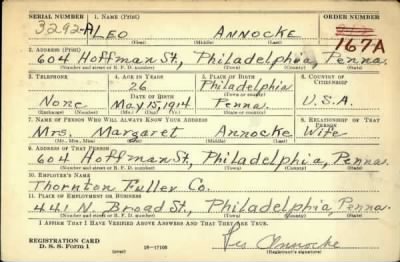 SERIAL NUMBER 1. NAME (Print) ORDER NUMBER
3292-A LEO ANNOCKE
(First) (Middle) (Last) 167A
2. ADDRESS (Print)
604 Hoffman St., Philadelphia, Penna.
(Number and street or R. F. D. number) (Town) (County) (State)
3. TELEPHONE 4. AGE IN YEARS 5. PLACE OF BIRTH 6. COUNTRY OF CITIZENSHIP
26 Philadelphia
DATE OF BIRTH (Town or county)
None May 15, 1914 Penna. U.S.A.
(Exchange) (Number) (Mo.) (Day) (Yr.) (State or country)
7. NAME OF PERSON WHO WILL ALWAYS KNOW YOUR ADDRESS 8. RELATIONSHIP OF THAT PERSON
Mrs. Margaret Annocke Wife
(Mr., Mrs., Miss) (First) (Middle) (Last)
9. ADDRESS OF THAT PERSON
604 Hoffman St., Philadelphia, Penna.
(Number and street or R. F. D. number) (Town) (County) (State)
10. EMPLOYER'S NAME
Thornton Fuller Co.
11. PLACE OF EMPLOYMENT OR BUSINESS
441 N. Broad St., Philadelphia, Penna.
(Number and street or R. F. D. number) (Town) (County) (State)
I AFFIRM THAT I HAVE VERIFIED ABOVE ANSWERS AND THAT THEY ARE TRUE.
REGISTRATION CARD
D. S. S. Form 1 (over) 16-17105 Leo Annocke
(Registrant's signature)